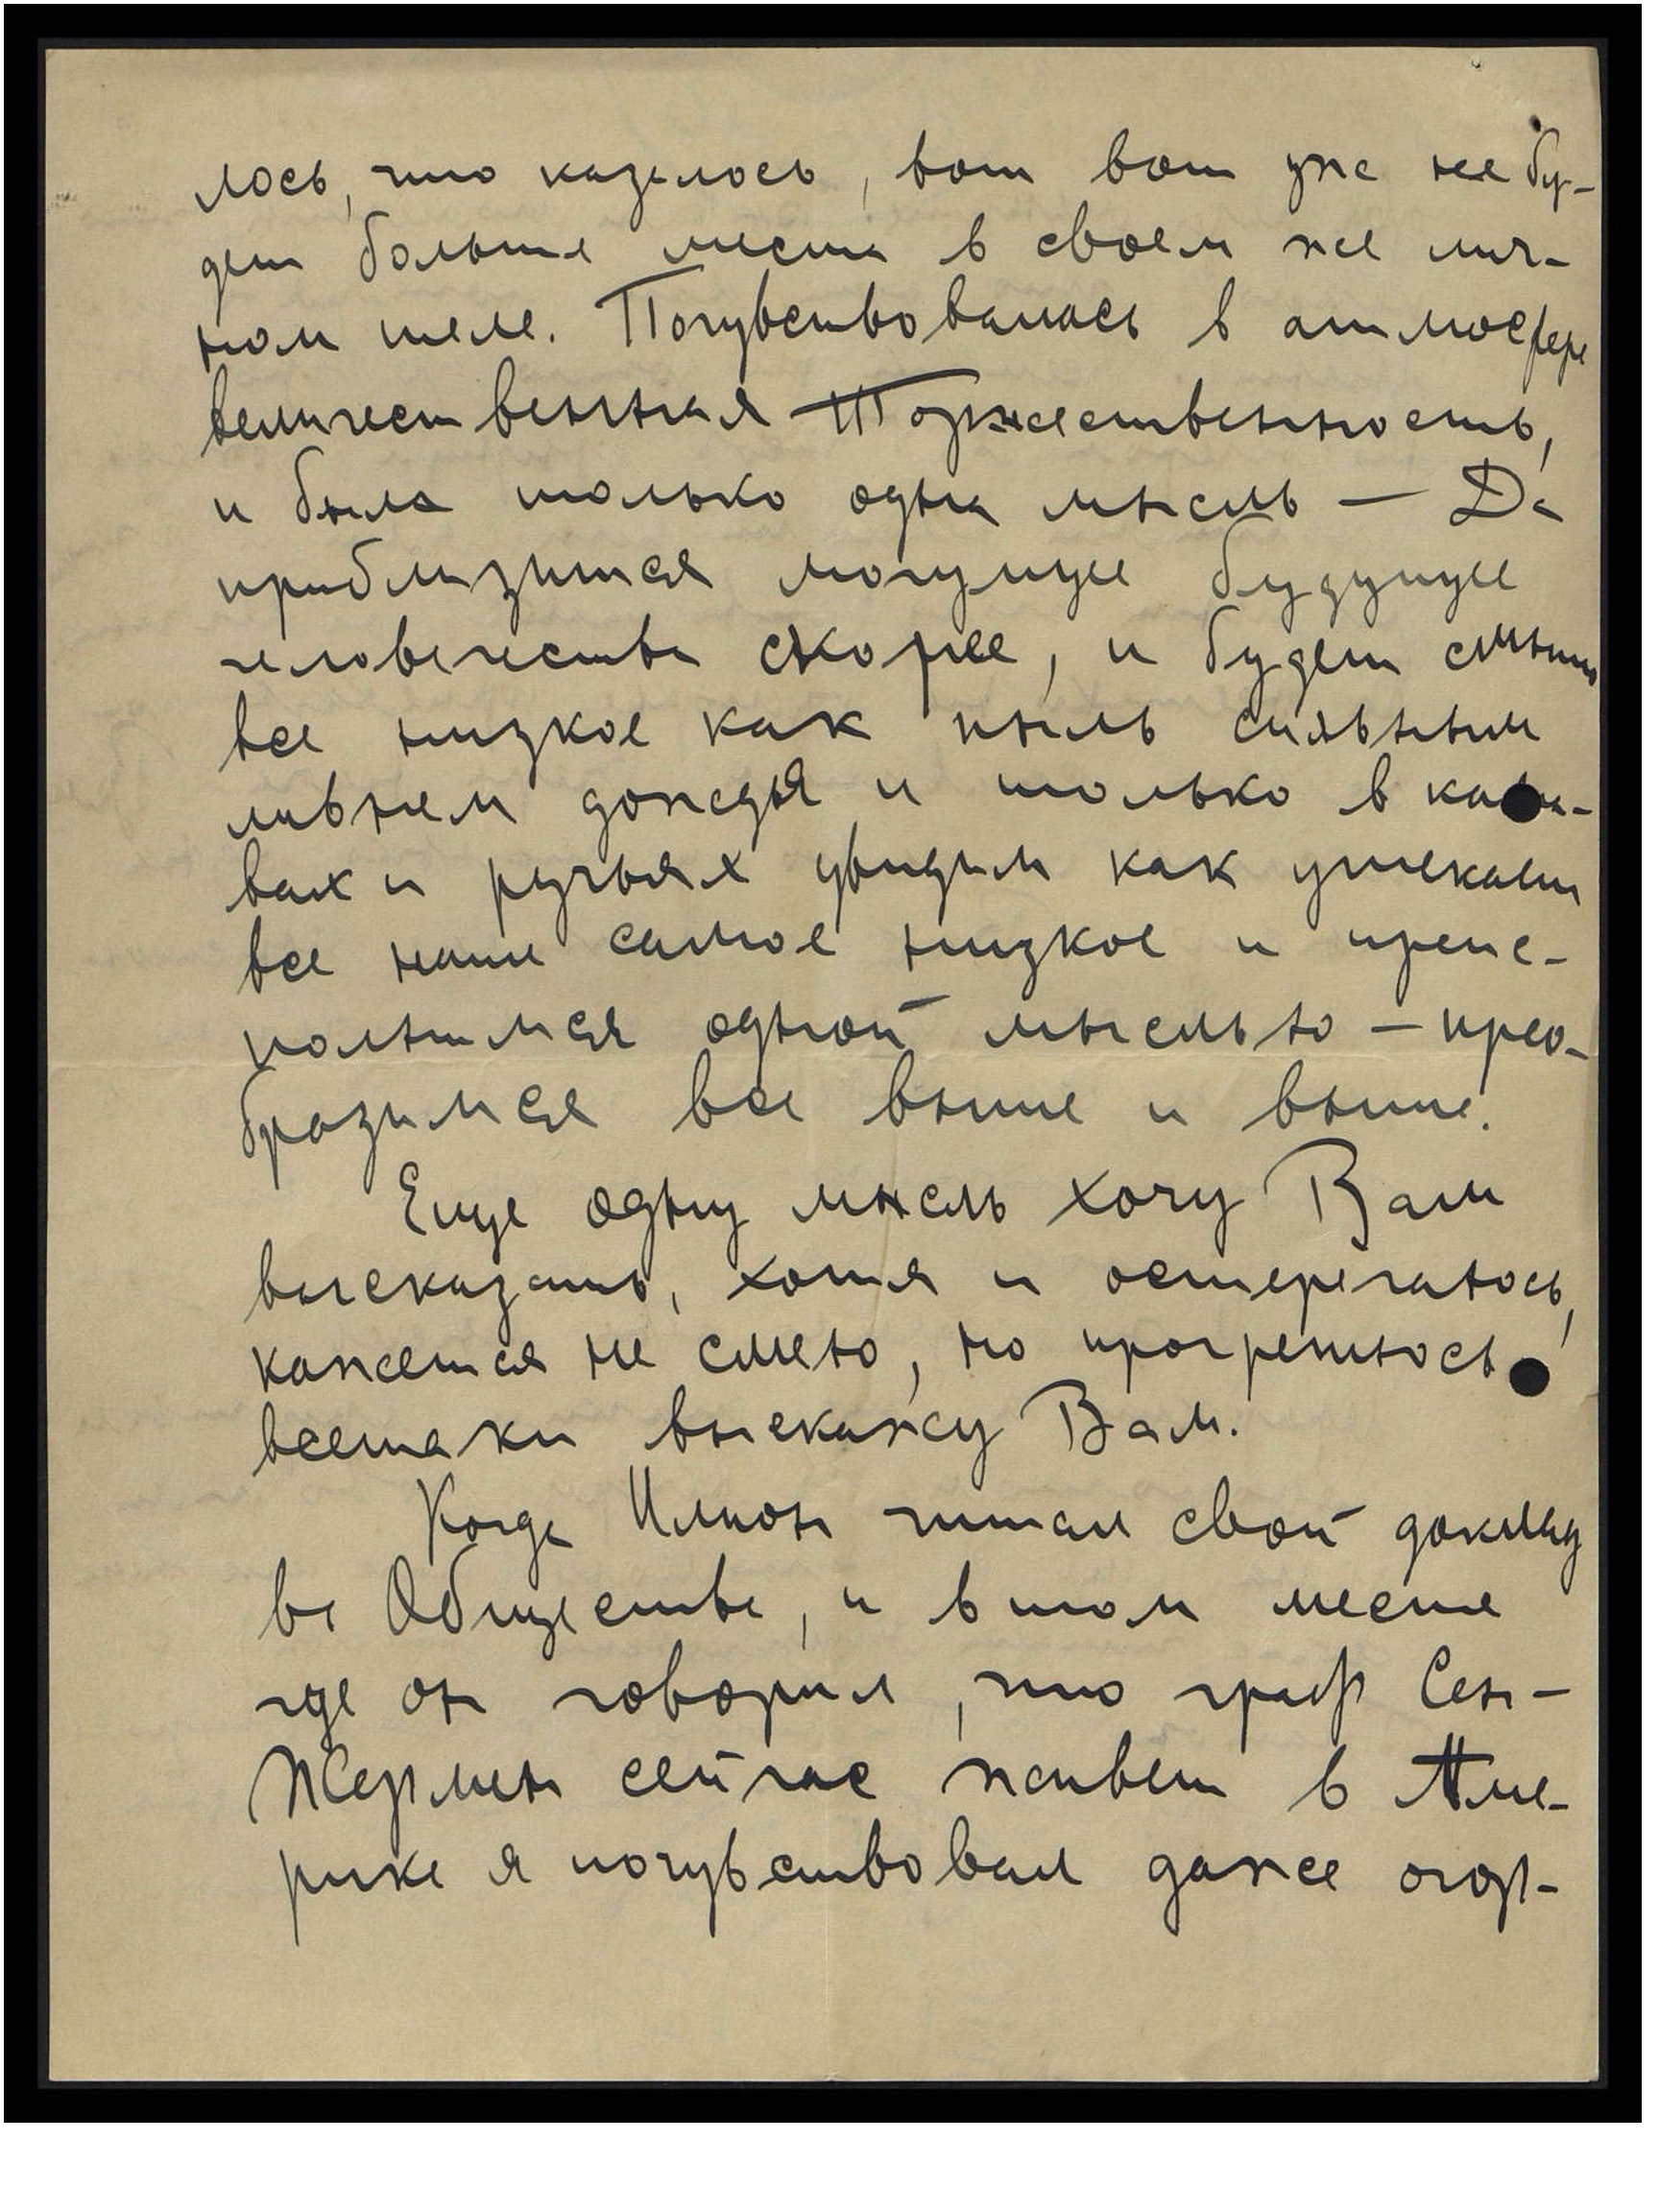 лось, что казалось, вот вот уже не бу-
дет больше места в своем же лич-
ном теле. Почувствовалась в атмосфере
величественная Торжественность,
и была только одна мысль — Да
приблизится могущее будущее
человечества скорее, и будет смыто
все низкое как пыль сильным
ливнем дождя и только в кана-
вах и ручьях увидим как утекает
все наше самое низкое и преис-
полнимся одной мыслью — прео-
бразимся все выше и выше.
Еще одну мысль хочу Вам
высказать, хотя и остерегаюсь,
кажется не смею, но прогрешюсь
всетаки выскажу Вам.
Когда Илион читал свой доклад
в Обществе, и в том месте
где он говорил, что граф Сен-
Жермен сейчас живет в Аме-
рике я почувствовал даже огор-